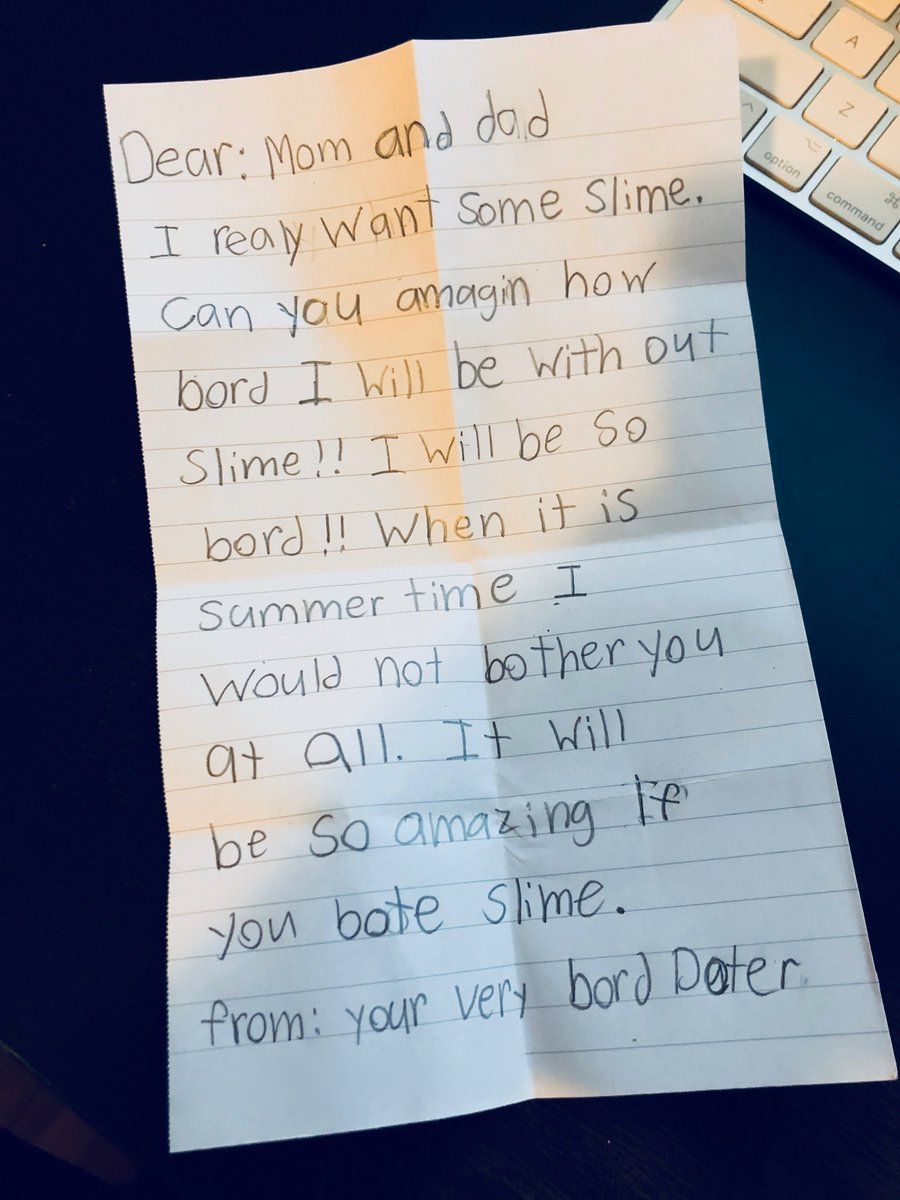 Dear: Mom and dad
I realy want some slime.
Can you amagin how
bord I will be with out
Slime!! I will be so
bord!! When it is
summer time I
would not bother you
at all. It will
be so amazing If
you bote slime.
from: your very bord Doter
A
Z
^
⌥
option
⌘
command